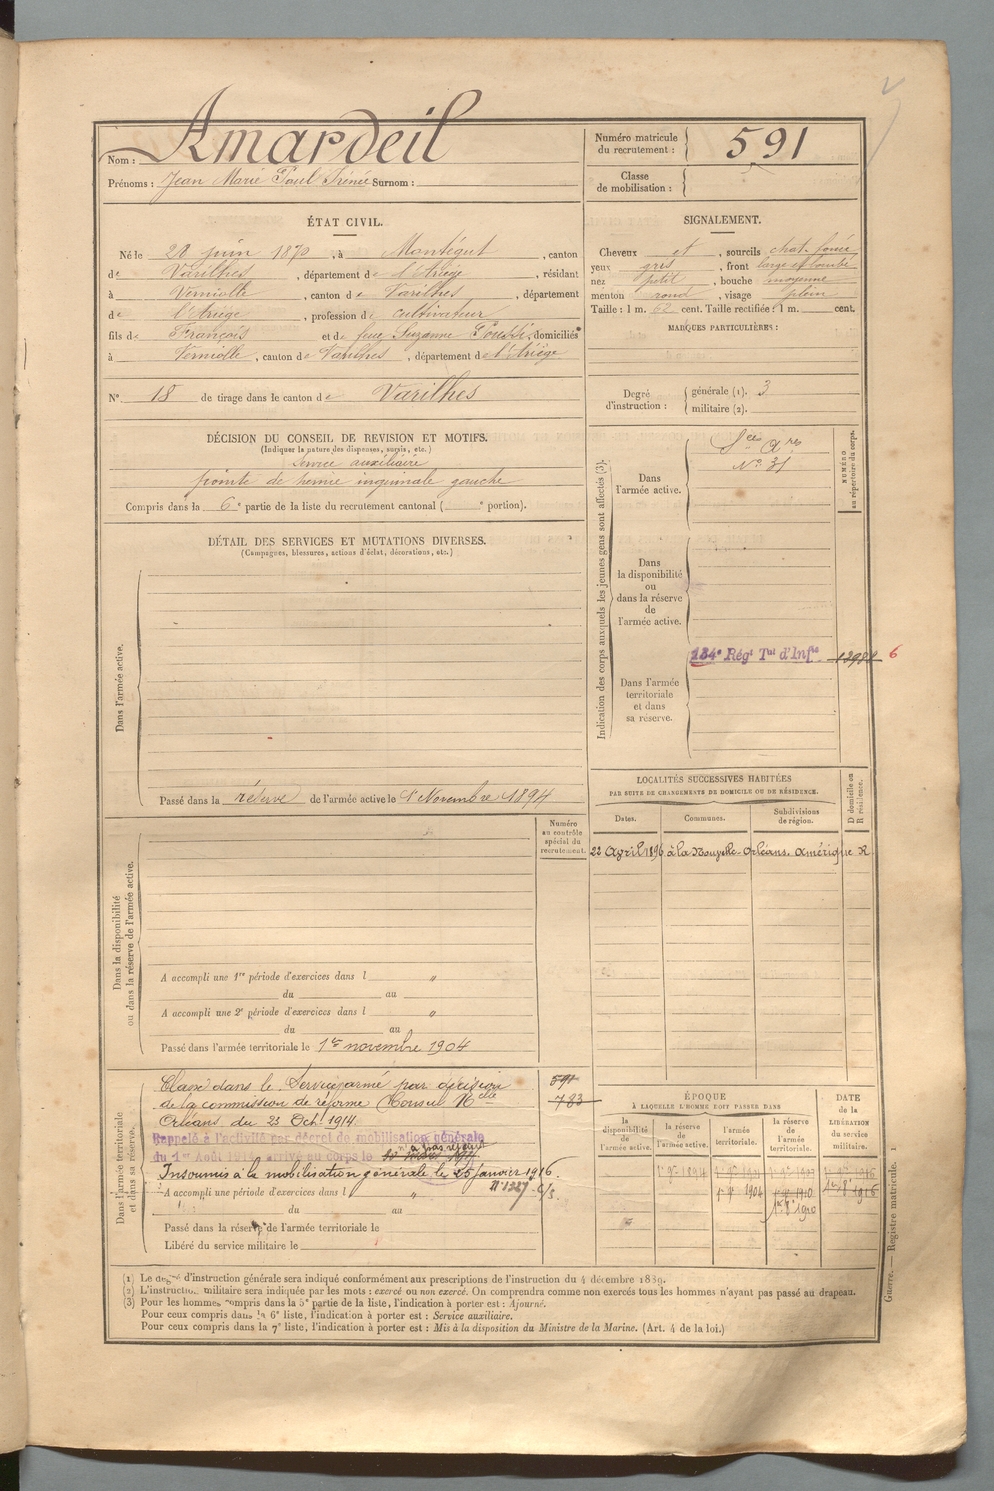 Nom : Amardeil
Prénoms : Jean Marie Paul Irénée Surnom :
Numéro matricule du recrutement : 591
Classe de mobilisation :
ÉTAT CIVIL.
Né le 20 juin 1870, à Montégut, canton
de Varilhes, département de l'Ariège, résidant
à Verniolle, canton de Varilhes, département
de l'Ariège, profession de cultivateur
fils de François et de feue Suzanne, domiciliés
à Verniolle, canton de Varilhes, département de l'Ariège
N° 18 de tirage dans le canton de Varilhes
SIGNALEMENT.
Cheveux et, sourcils chat. foncé
yeux gris, front large et bombé
nez petit, bouche moyenne
menton rond, visage plein
Taille : 1 m. 62 cent. Taille rectifiée : 1 m. cent.
MARQUES PARTICULIÈRES :
Degré d'instruction : générale (1). 3
militaire (2).
DÉCISION DU CONSEIL DE REVISION ET MOTIFS.
(Indiquer la nature des dispenses, sursis, etc.)
Service auxiliaire
pointe de hernie inguinale gauche
Compris dans la 6e partie de la liste du recrutement cantonal ( e portion).
DÉTAIL DES SERVICES ET MUTATIONS DIVERSES.
(Campagnes, blessures, actions d'éclat, décorations, etc.)
Dans l'armée active.
Passé dans la réserve de l'armée active le 1er Novembre 1894
Indication des corps auxquels les jeunes gens sont affectés (3).
NUMÉRO au répertoire du corps.
Dans l'armée active.
Sces Ares
N° 31
Dans la disponibilité ou dans la réserve de l'armée active.
134e Régt Tal d'Infie 12988 6
Dans l'armée territoriale et dans sa réserve.
LOCALITÉS SUCCESSIVES HABITÉES
PAR SUITE DE CHANGEMENTS DE DOMICILE OU DE RÉSIDENCE.
Dates. Communes. Subdivisions de région. D domicile ou R résidence.
22 Avril 1896 à la Nouvelle-Orléans. Amérique R.
Numéro au contrôle spécial du recrutement.
Dans la disponibilité ou dans la réserve de l'armée active.
A accompli une 1re période d'exercices dans l "
du au
A accompli une 2e période d'exercices dans l "
du au
Passé dans l'armée territoriale le 1er novembre 1904
Dans l'armée territoriale et dans sa réserve.
Classé dans le Service armé par décision 591
de la commission de réforme Consul Nelle 783
Orléans du 23 Oct. 1914
Rappelé à l'activité par décret de mobilisation générale
du 1er Août 1914, arrivé au corps le
n'a pas rejoint
Insoumis à la mobilisation générale le 25 janvier 1916
N° 1327
A accompli une période d'exercices dans l "
du au
Passé dans la réserve de l'armée territoriale le
Libéré du service militaire le
ÉPOQUE
À LAQUELLE L'HOMME DOIT PASSER DANS
la disponibilité de l'armée active.
la réserve de l'armée active.
l'armée territoriale.
la réserve de l'armée territoriale.
DATE de la LIBÉRATION du service militaire.
(1) Le degré d'instruction générale sera indiqué conformément aux prescriptions de l'instruction du 4 décembre 1889.
(2) L'instruction militaire sera indiquée par les mots : exercé ou non exercé. On comprendra comme non exercés tous les hommes n'ayant pas passé au drapeau.
(3) Pour les hommes compris dans la 5e partie de la liste, l'indication à porter est : Ajourné.
Pour ceux compris dans la 6e liste, l'indication à porter est : Service auxiliaire.
Pour ceux compris dans la 7e liste, l'indication à porter est : Mis à la disposition du Ministre de la Marine. (Art. 4 de la loi.)
Guerre. — Registre matricule. 1